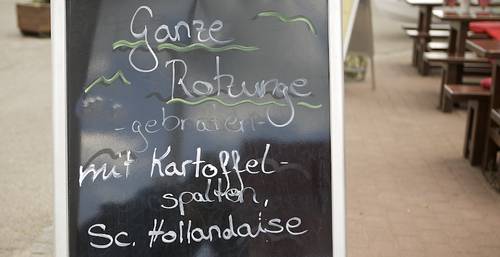 Ganze
Rotzunge
-gebraten-
mit Kartoffel-
spalten,
Sc. Hollandaise